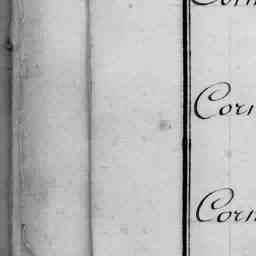 Corn
Corn
Corn